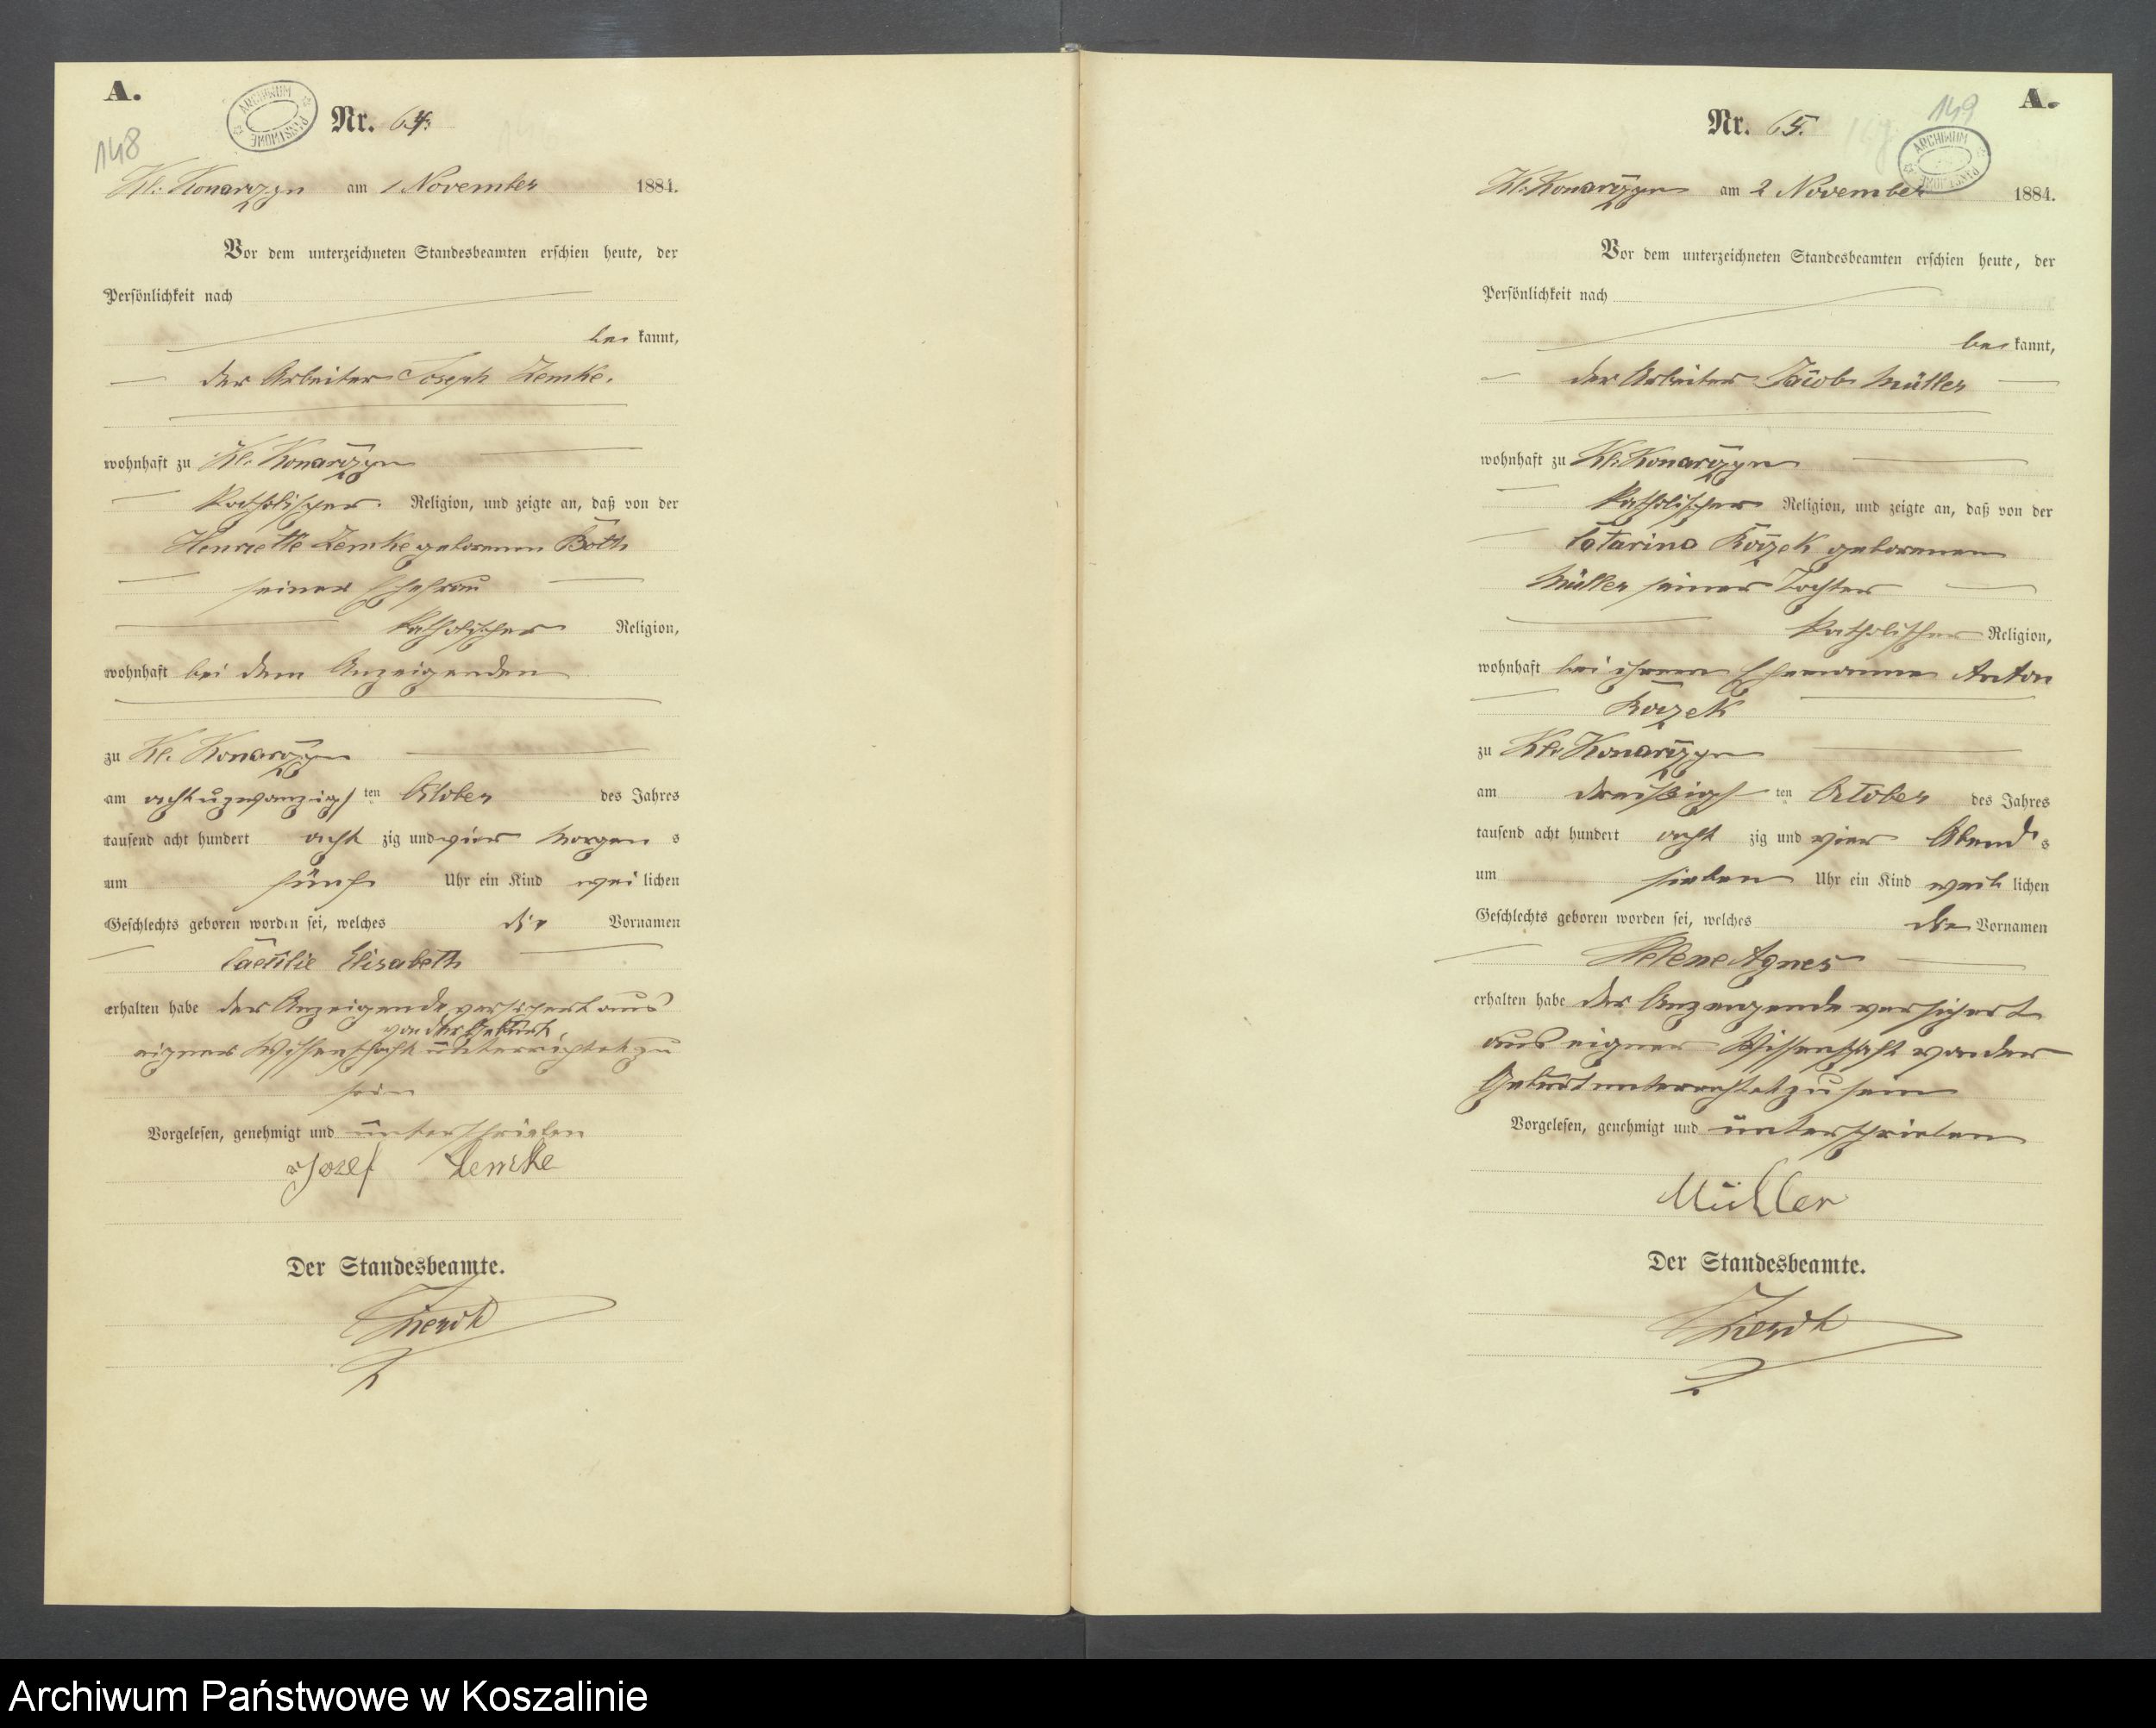 A.
148
ARCHIWUM PAŃSTWOWE
Nr. 64.
Kl. Konarczyn am 1 November 1884.
Vor dem unterzeichneten Standesbeamten erschien heute, der
Persönlichkeit nach
be kannt,
der Arbeiter Joseph Zemke.
wohnhaft zu Kl. Konarczyn
katholischer Religion, und zeigte an, daß von der
Henriette Zemke geborenen Both
seiner Ehefrau
katholischer Religion,
wohnhaft bei dem Anzeigenden
zu Kl. Konarczyn
am achtuzwanzigsten Oktober des Jahres
tausend acht hundert acht zig und vier Morgen s
um fünf Uhr ein Kind wei lichen
Geschlechts geboren worden sei, welches die Vornamen
Caecilie Elisabeth
erhalten habe der Anzeigende versichert aus
von der Geburt
eigner Wissenschaft unterrichtet zu
sein
Vorgelesen, genehmigt und unterschrieben
Jozef Zemke
Der Standesbeamte.
A.
149
ARCHIWUM PAŃSTWOWE
Nr. 65.
Kl. Konarczyn am 2 November 1884.
Vor dem unterzeichneten Standesbeamten erschien heute, der
Persönlichkeit nach
be kannt,
der Arbeiter Jacob Müller
wohnhaft zu Kl. Konarczyn
katholischer Religion, und zeigte an, daß von der
Catarina geborenen
Müller seiner Tochter
katholischer Religion,
wohnhaft bei ihrem Ehemanne Anton
zu Kl. Konarczyn
am dreißigsten October des Jahres
tausend acht hundert acht zig und vier Abend s
um sieben Uhr ein Kind weib lichen
Geschlechts geboren worden sei, welches die Vornamen
Helene Agnes
erhalten habe der Anzeigende versichert
aus eigner Wissenschaft von der
Geburt unterrichtet zu sein
Vorgelesen, genehmigt und unterschrieben
Müller
Der Standesbeamte.
Archiwum Państwowe w Koszalinie